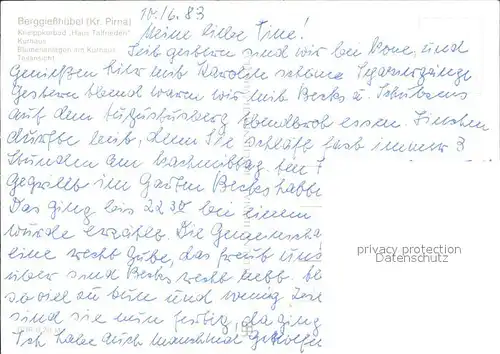 Berggießhübel (Kr. Pirna)
Kneippkurbad „Haus Talfrieden"
Kurhaus
Blumenanlagen am Kurhaus
Teilansicht
10.6.83
Meine liebe Tine!
Seit gestern sind wir bei Rone, und
genießen hier mit Karoline schöne Spaziergänge
Gestern Abend waren wir mit Becks u.
auf dem Augustusberg Abendbrot essen. Tinchen
durfte mit, denn Sie schläft fast immer 3
Stunden am Nachmittag. Am 7
gegrillt im Garten Becks hatte
Das ging bis 22 30 bei einem
wurde erzählt. Die Gemeinscha
eine recht gute, das freut uns
über sind Becks recht nett.
soviel zu tun und wenig Zeit
sind sie nun fertig, da ging
Ich habe auch manchmal geholfen
privacy protection
Datenschutz